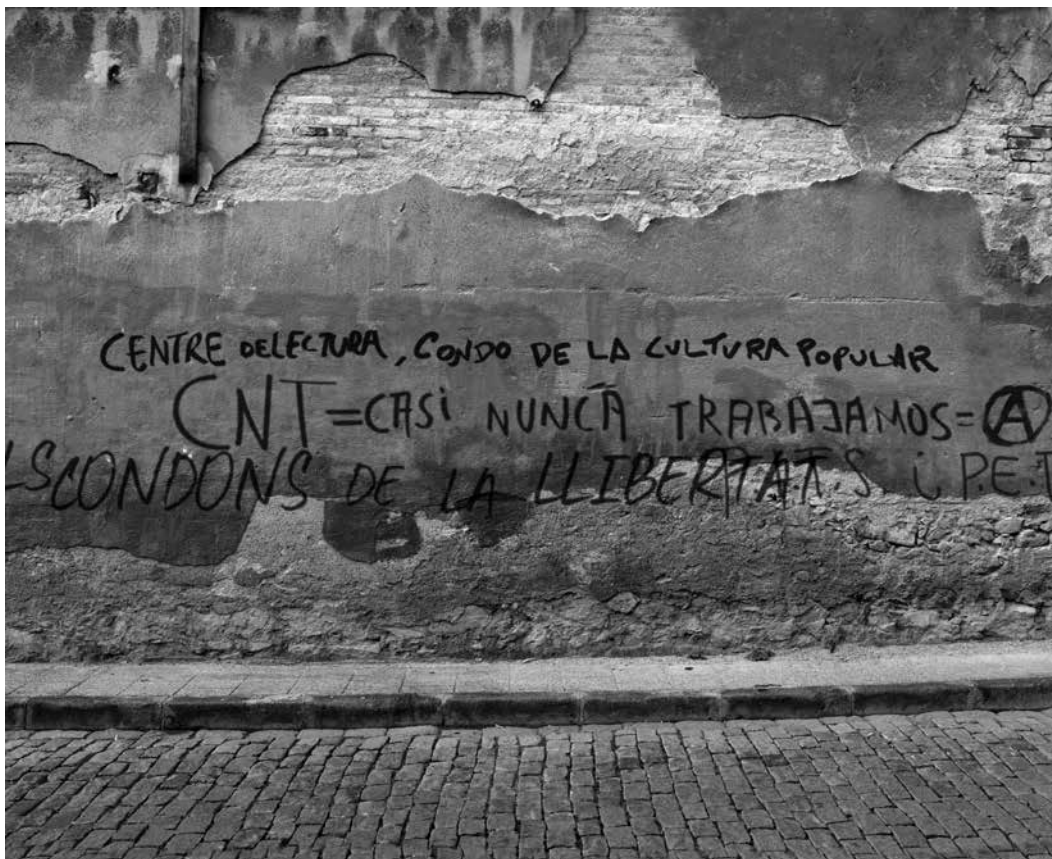 CENTRE DE LECTURA, CONDO DE LA CULTURA POPULAR
CNT = CASi NUNCA TRABAJAMOS = A
LS CONDONS DE LA LLIBERTAT.S i P.E.T